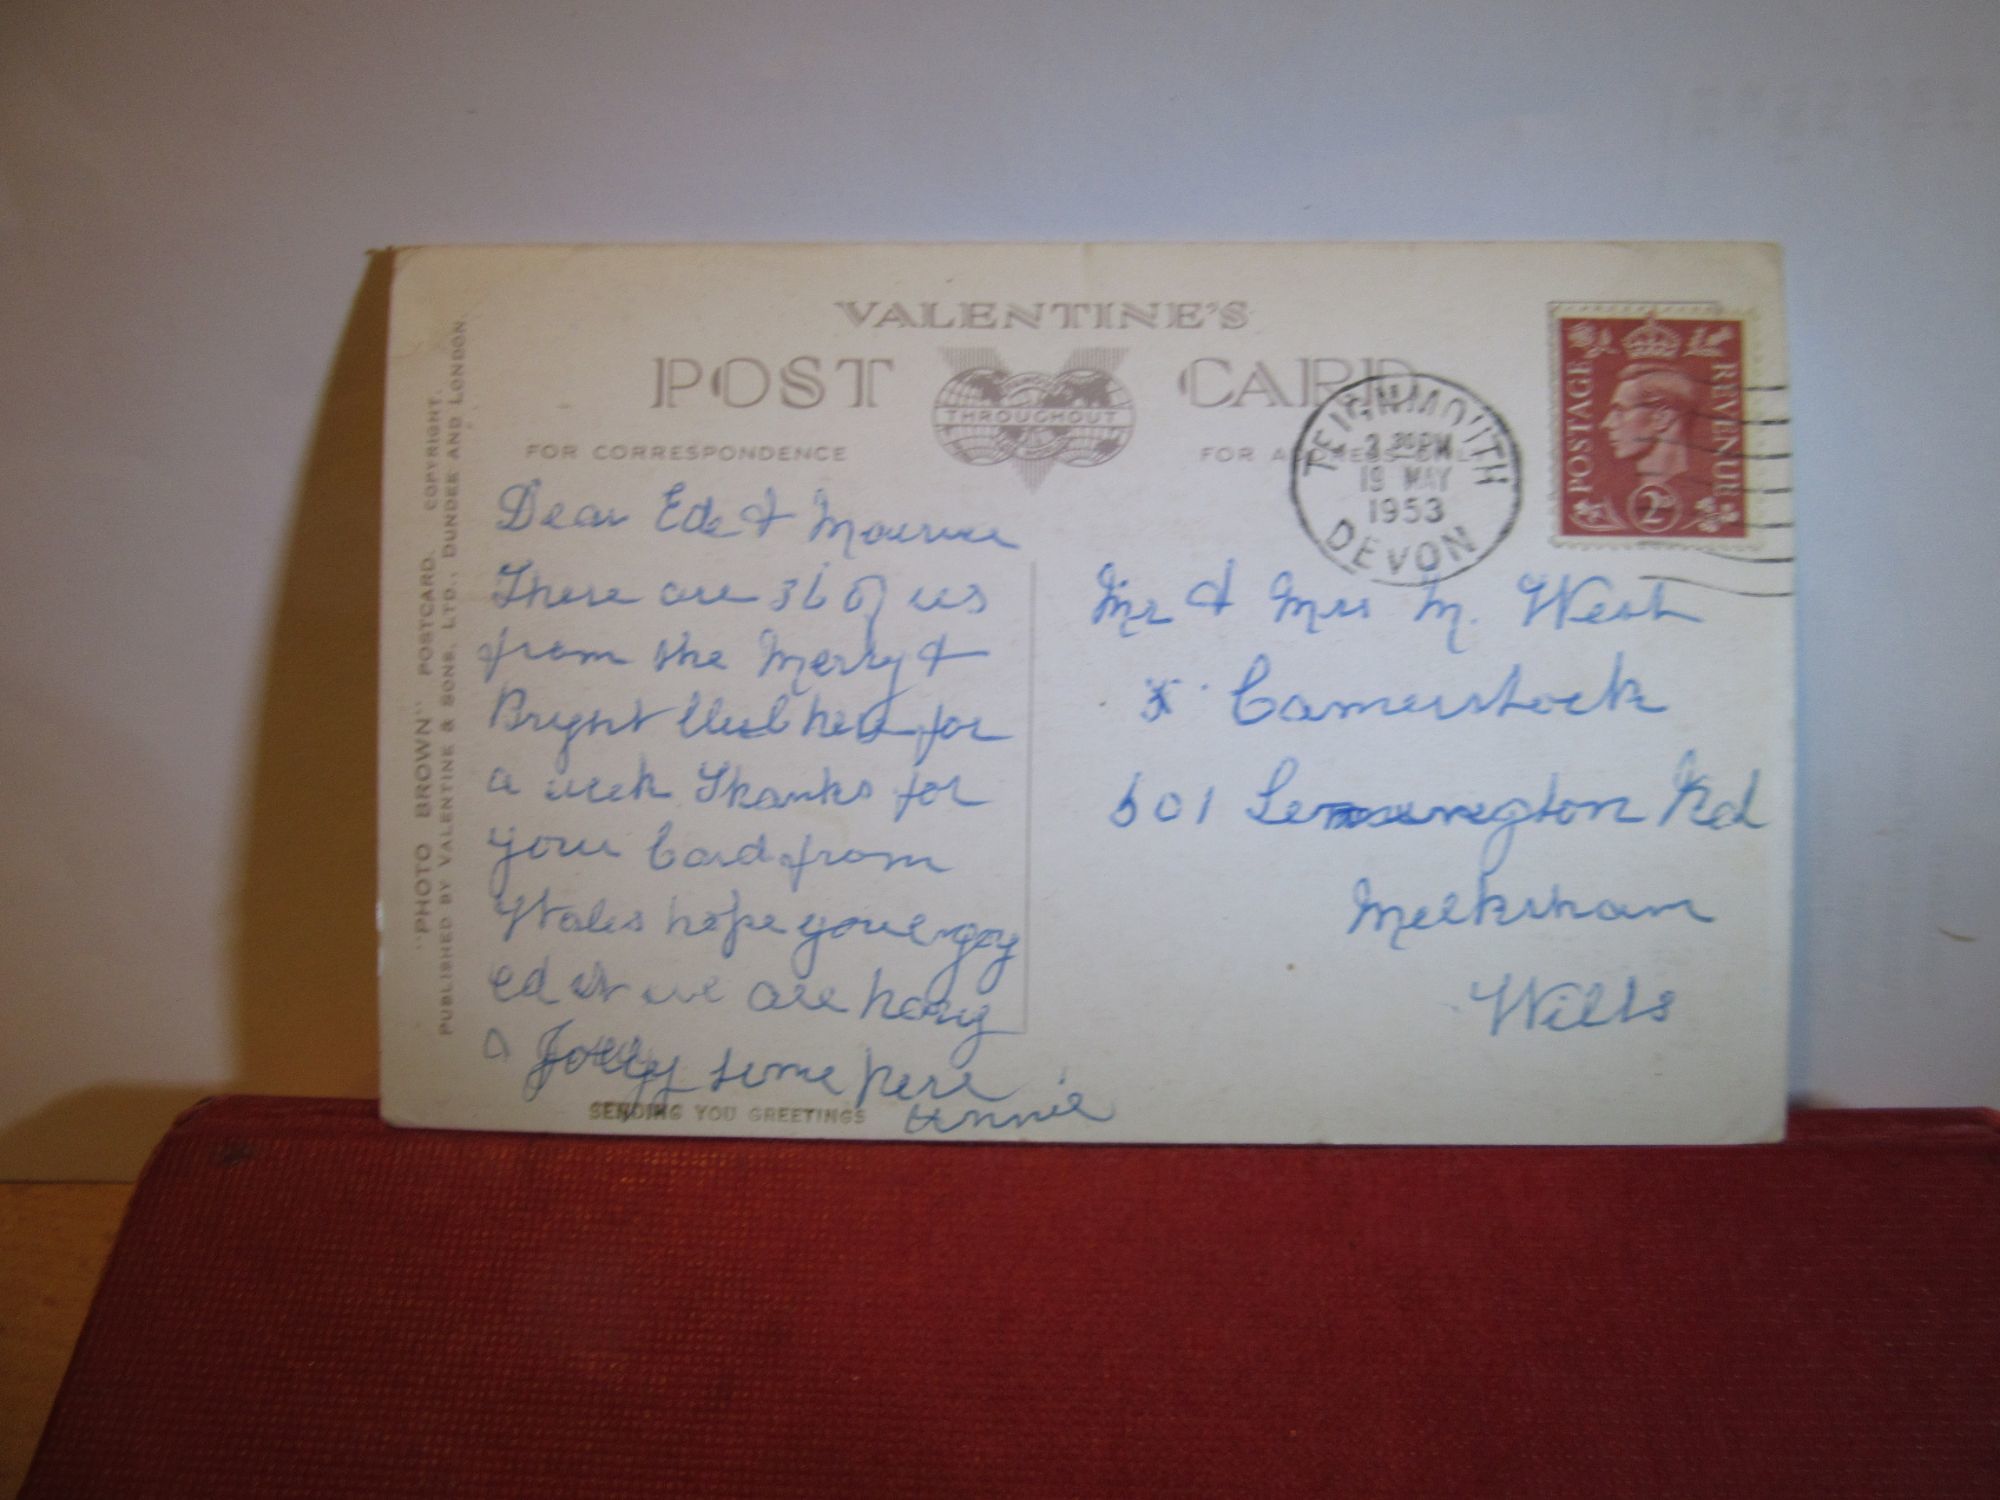 VALENTINE'S
POST CARD
THROUGHOUT
FOR CORRESPONDENCE
FOR ADDRESS ONLY
"PHOTO BROWN" POSTCARD. COPYRIGHT.
PUBLISHED BY VALENTINE & SONS, LTD., DUNDEE AND LONDON.
TEIGNMOUTH
3 30 PM
19 MAY
1953
DEVON
POSTAGE REVENUE
2D
Dear Ede & Maurice
There are 36 of us
from the Merry &
Bright Club here for
a week Thanks for
your Card from
Wales hope you engoy
ed it we are haveg
a Jolly time here
Annie
SENDING YOU GREETINGS
Mr & Mrs M. West
601 Semington Rd
Melksham
Wilts